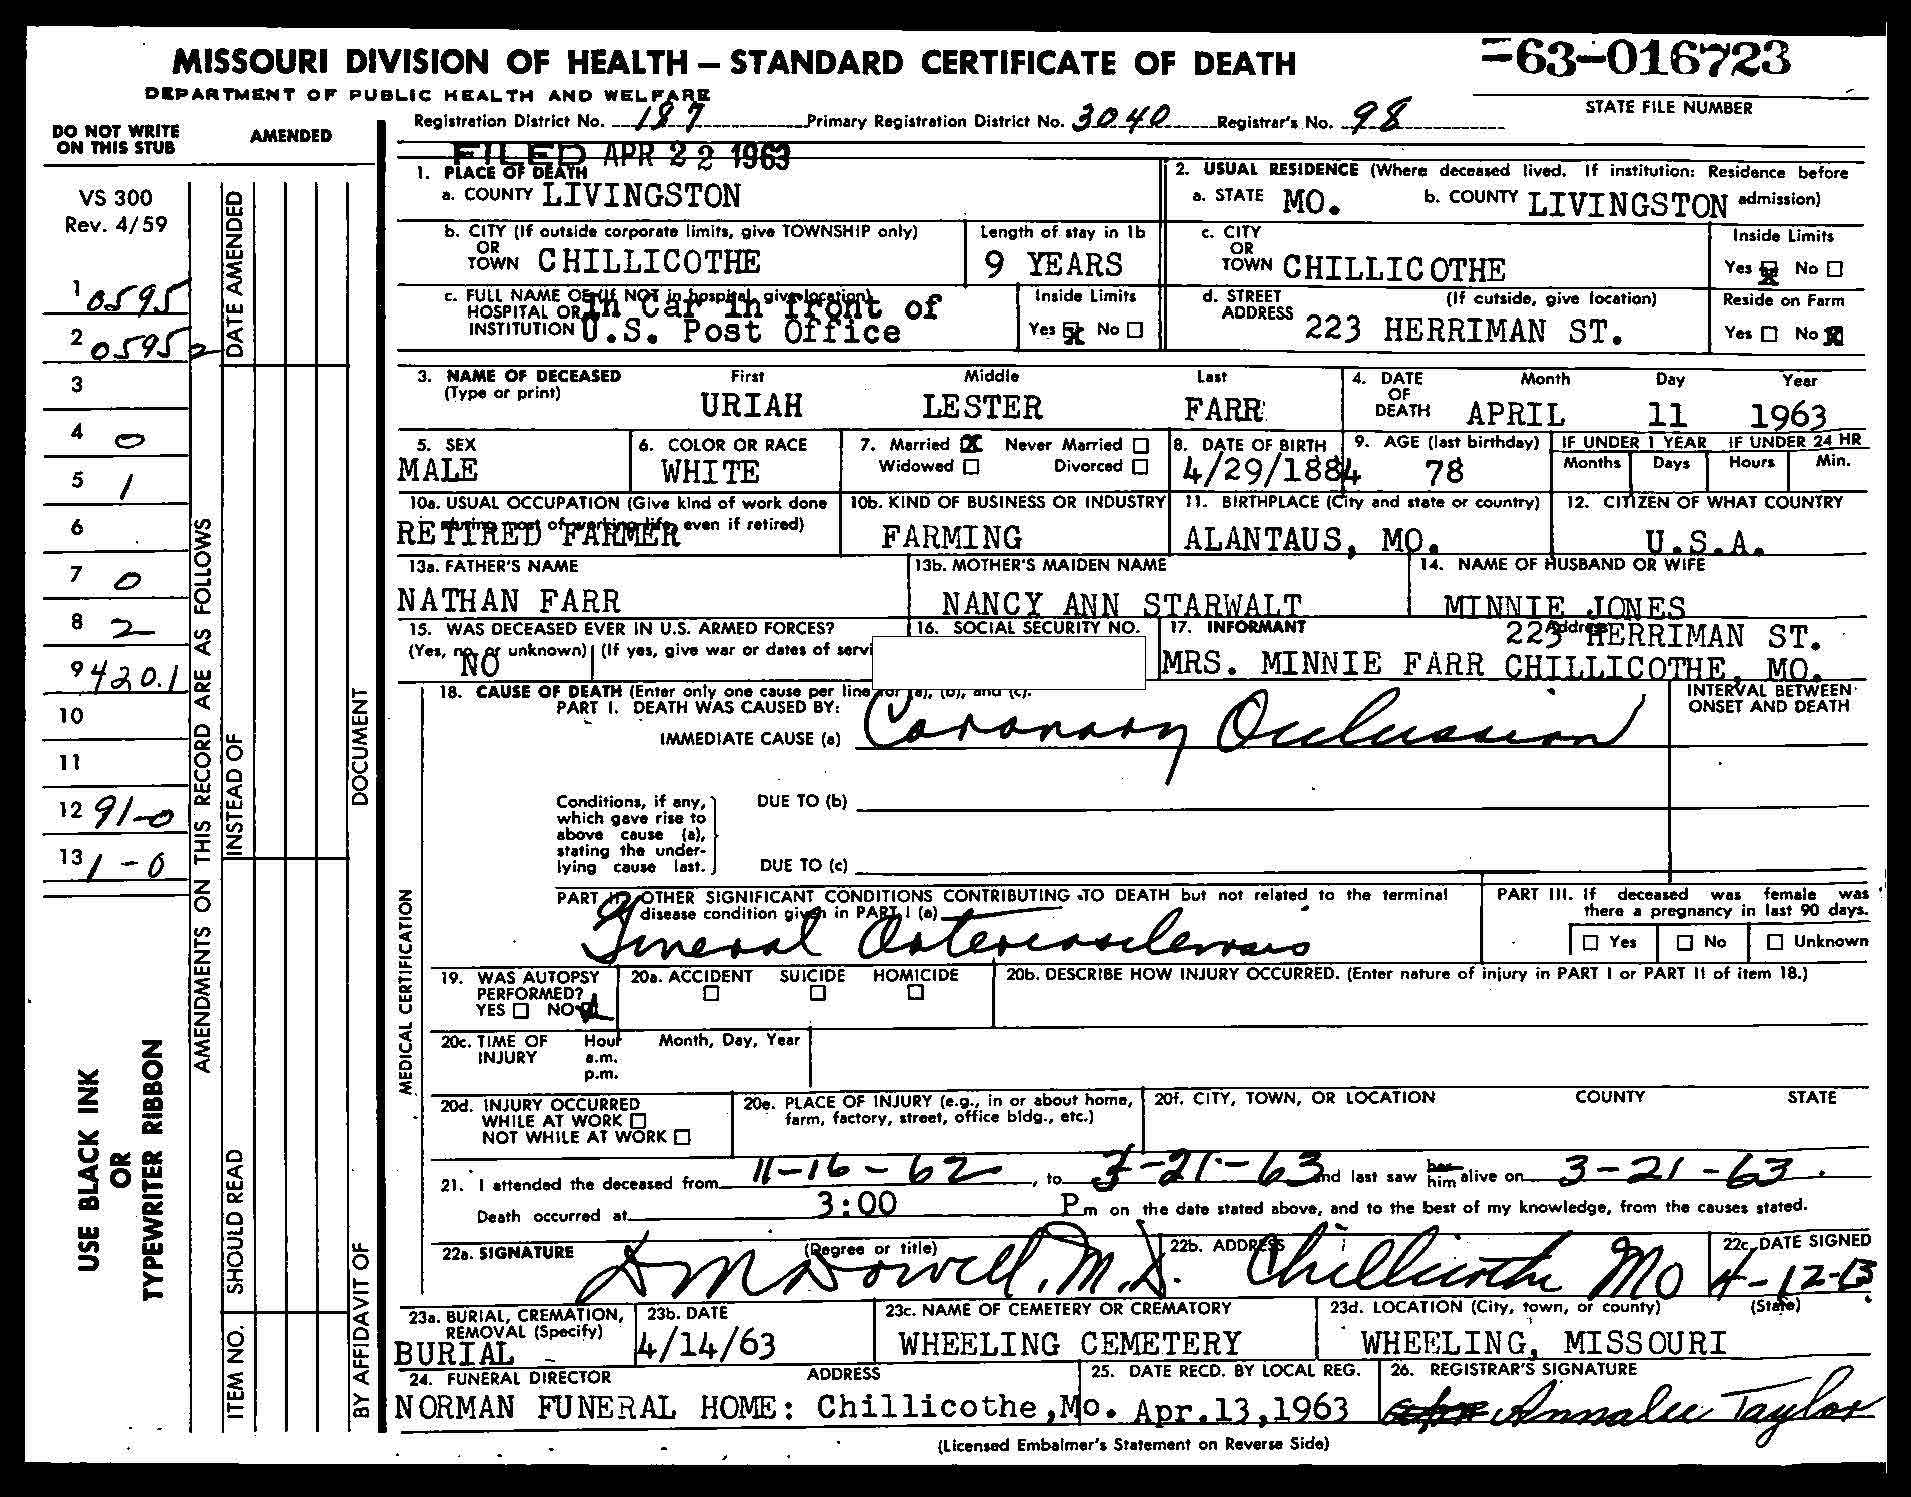 MISSOURI DIVISION OF HEALTH — STANDARD CERTIFICATE OF DEATH
-63-016723
DEPARTMENT OF PUBLIC HEALTH AND WELFARE
STATE FILE NUMBER
Registration District No. 187 Primary Registration District No. 3040 Registrar's No. 98
DO NOT WRITE ON THIS STUB
AMENDED
FILED APR 22 1963
VS 300
Rev. 4/59
1 0595
2 0595 2
3
4 0
5 1
6
7 0
8 2
9 420.1
10
11
12 91-0
13 1-0
USE BLACK INK
OR
TYPEWRITER RIBBON
AMENDMENTS ON THIS RECORD ARE AS FOLLOWS
DATE AMENDED
INSTEAD OF
SHOULD READ
ITEM NO.
DOCUMENT
BY AFFIDAVIT OF
MEDICAL CERTIFICATION
1. PLACE OF DEATH
a. COUNTY LIVINGSTON
2. USUAL RESIDENCE (Where deceased lived. If institution: Residence before admission)
a. STATE MO. b. COUNTY LIVINGSTON
b. CITY (If outside corporate limits, give TOWNSHIP only)
OR
TOWN CHILLICOTHE
Length of stay in 1b
9 YEARS
c. CITY
OR
TOWN CHILLICOTHE
Inside Limits
Yes No
c. FULL NAME OF (If NOT in hospital, give location)
HOSPITAL OR In Car in front of
INSTITUTION U.S. Post Office
Inside Limits
Yes No
d. STREET (If outside, give location)
ADDRESS 223 HERRIMAN ST.
Reside on Farm
Yes No
3. NAME OF DECEASED First Middle Last
(Type or print)
URIAH LESTER FARR
4. DATE OF DEATH Month Day Year
APRIL 11 1963
5. SEX
MALE
6. COLOR OR RACE
WHITE
7. Married Never Married
Widowed Divorced
8. DATE OF BIRTH
4/29/1884
9. AGE (last birthday)
78
IF UNDER 1 YEAR IF UNDER 24 HR
Months Days Hours Min.
10a. USUAL OCCUPATION (Give kind of work done
during most of working life, even if retired)
RETIRED FARMER
10b. KIND OF BUSINESS OR INDUSTRY
FARMING
11. BIRTHPLACE (City and state or country)
ALANTAUS, MO.
12. CITIZEN OF WHAT COUNTRY
U.S.A.
13a. FATHER'S NAME
NATHAN FARR
13b. MOTHER'S MAIDEN NAME
NANCY ANN STARWALT
14. NAME OF HUSBAND OR WIFE
MINNIE JONES
15. WAS DECEASED EVER IN U.S. ARMED FORCES?
(Yes, no, or unknown) (If yes, give war or dates of servi
NO
16. SOCIAL SECURITY NO.
17. INFORMANT Address
223 HERRIMAN ST.
MRS. MINNIE FARR CHILLICOTHE, MO.
18. CAUSE OF DEATH (Enter only one cause per line for (a), (b), and (c).
PART I. DEATH WAS CAUSED BY:
INTERVAL BETWEEN ONSET AND DEATH
IMMEDIATE CAUSE (a) Coronary Occlussion
Conditions, if any,
which gave rise to
above cause (a),
stating the under-
lying cause last.
DUE TO (b)
DUE TO (c)
PART II. OTHER SIGNIFICANT CONDITIONS CONTRIBUTING TO DEATH but not related to the terminal
disease condition given in PART I (a)
General Arteriosclerosis
PART III. If deceased was female was
there a pregnancy in last 90 days.
Yes No Unknown
19. WAS AUTOPSY
PERFORMED?
YES NO
20a. ACCIDENT SUICIDE HOMICIDE
20b. DESCRIBE HOW INJURY OCCURRED. (Enter nature of injury in PART I or PART II of item 18.)
20c. TIME OF INJURY Hour Month, Day, Year
a.m.
p.m.
20d. INJURY OCCURRED
WHILE AT WORK
NOT WHILE AT WORK
20e. PLACE OF INJURY (e.g., in or about home,
farm, factory, street, office bldg., etc.)
20f. CITY, TOWN, OR LOCATION COUNTY STATE
21. I attended the deceased from 11-16-62, to 3-21-63 and last saw her him alive on 3-21-63.
Death occurred at 3:00 P m on the date stated above, and to the best of my knowledge, from the causes stated.
22a. SIGNATURE (Degree or title)
D M Dowell, M.D.
22b. ADDRESS
Chillicothe Mo
22c. DATE SIGNED
4-12-63
23a. BURIAL, CREMATION,
REMOVAL (Specify)
BURIAL
23b. DATE
4/14/63
23c. NAME OF CEMETERY OR CREMATORY
WHEELING CEMETERY
23d. LOCATION (City, town, or county) (State)
WHEELING, MISSOURI
24. FUNERAL DIRECTOR ADDRESS
NORMAN FUNERAL HOME: Chillicothe, Mo.
25. DATE RECD. BY LOCAL REG.
Apr. 13, 1963
26. REGISTRAR'S SIGNATURE
Annalee Taylor
(Licensed Embalmer's Statement on Reverse Side)